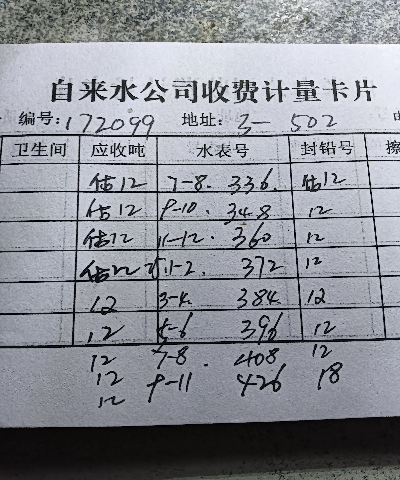 自来水公司收费计量卡片
编号: 172099 地址: 3-502
卫生间 应收吨 水表号 封铅号
估12 7-8. 336. 估12
估12 9-10. 348 12
估12 11-12. 360 12
估12 1-2. 372 12
12 3-4. 384 12
12 5-6 396 12
12 7-8. 408 12
12 9-11 426 18
12